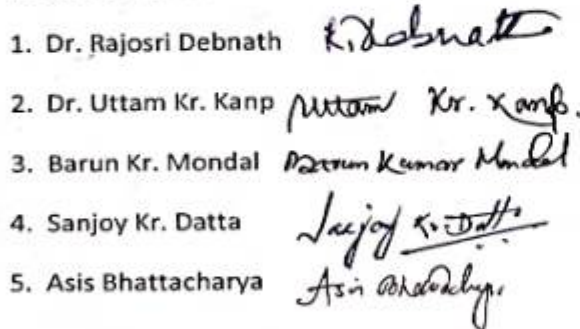 1. Dr. Rajosri Debnath R. Debnath
2. Dr. Uttam Kr. Kanp Uttam Kr. Kanp.
3. Barun Kr. Mondal Barun Kumar Mondal
4. Sanjoy Kr. Datta Sanjoy Kr. Datta
5. Asis Bhattacharya Asis Bhattacharya